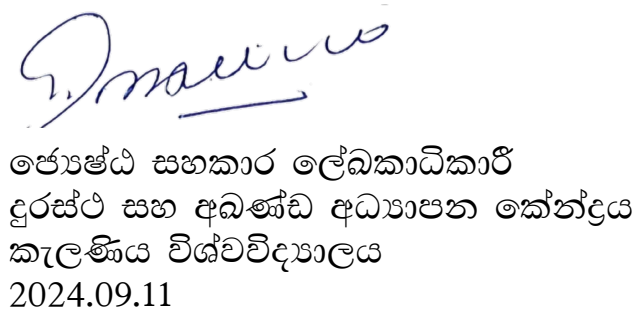 ජ්‍යෙෂ්ඨ සහකාර ලේඛකාධිකාරී
දුරස්ථ සහ අඛණ්ඩ අධ්‍යාපන කේන්ද්‍රය
කැලණිය විශ්වවිද්‍යාලය
2024.09.11